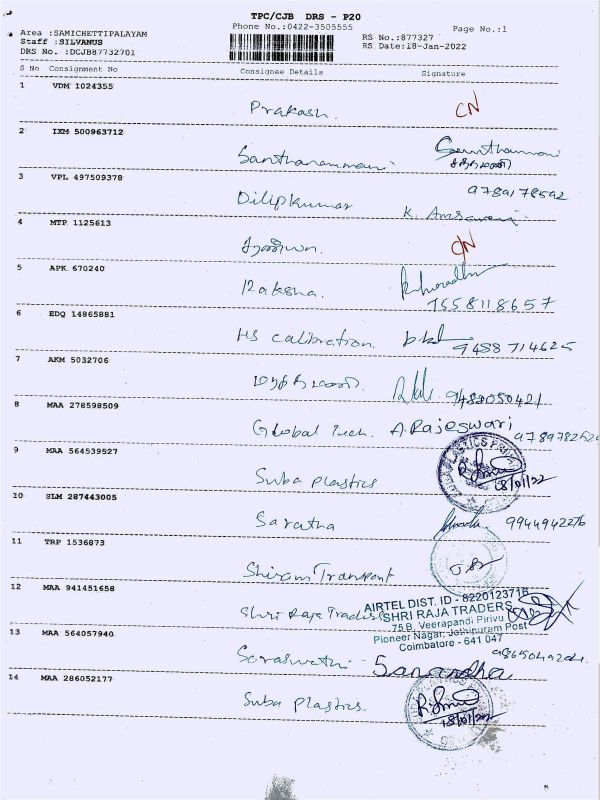 TPC/CJB DRS - P20
Phone No.:0422-3505555
Page No.:1
Area :SAMICHETTIPALAYAM
Staff :SILVANUS
DRS No. :DCJB87732701
RS No.:877327
RS Date:18-Jan-2022
S No Consignment No Consignee Details Signature
1 VDM 1024355
Prakash. CN
2 IXM 500963712
Santhanammani
3 VPL 497509378
9789178592
Dilipkumar K.
4 MTP 1125613
CN
5 APK 670240
Raksha.
7558118657
6 EDQ 14865881
HS calibration. 9488714625
7 AKM 5032706
9482050421
8 MAA 278598509
Global Tech. A.Rajeswari
9 MAA 564539527
Suba plastics 18/01/22
10 SLM 287443005
Saratha 9944942276
11 TRP 1536873
Shriram Transport
12 MAA 941451658
Shri Raja Traders
AIRTEL DIST. ID - 8220123716
SHRI RAJA TRADERS
75.B, Veerapandi Pirivu
Pioneer Nagar, Jothipuram Post
Coimbatore - 641 047
13 MAA 564057940
Saraswathi
14 MAA 286052177
Suba plastics. 18/01/22